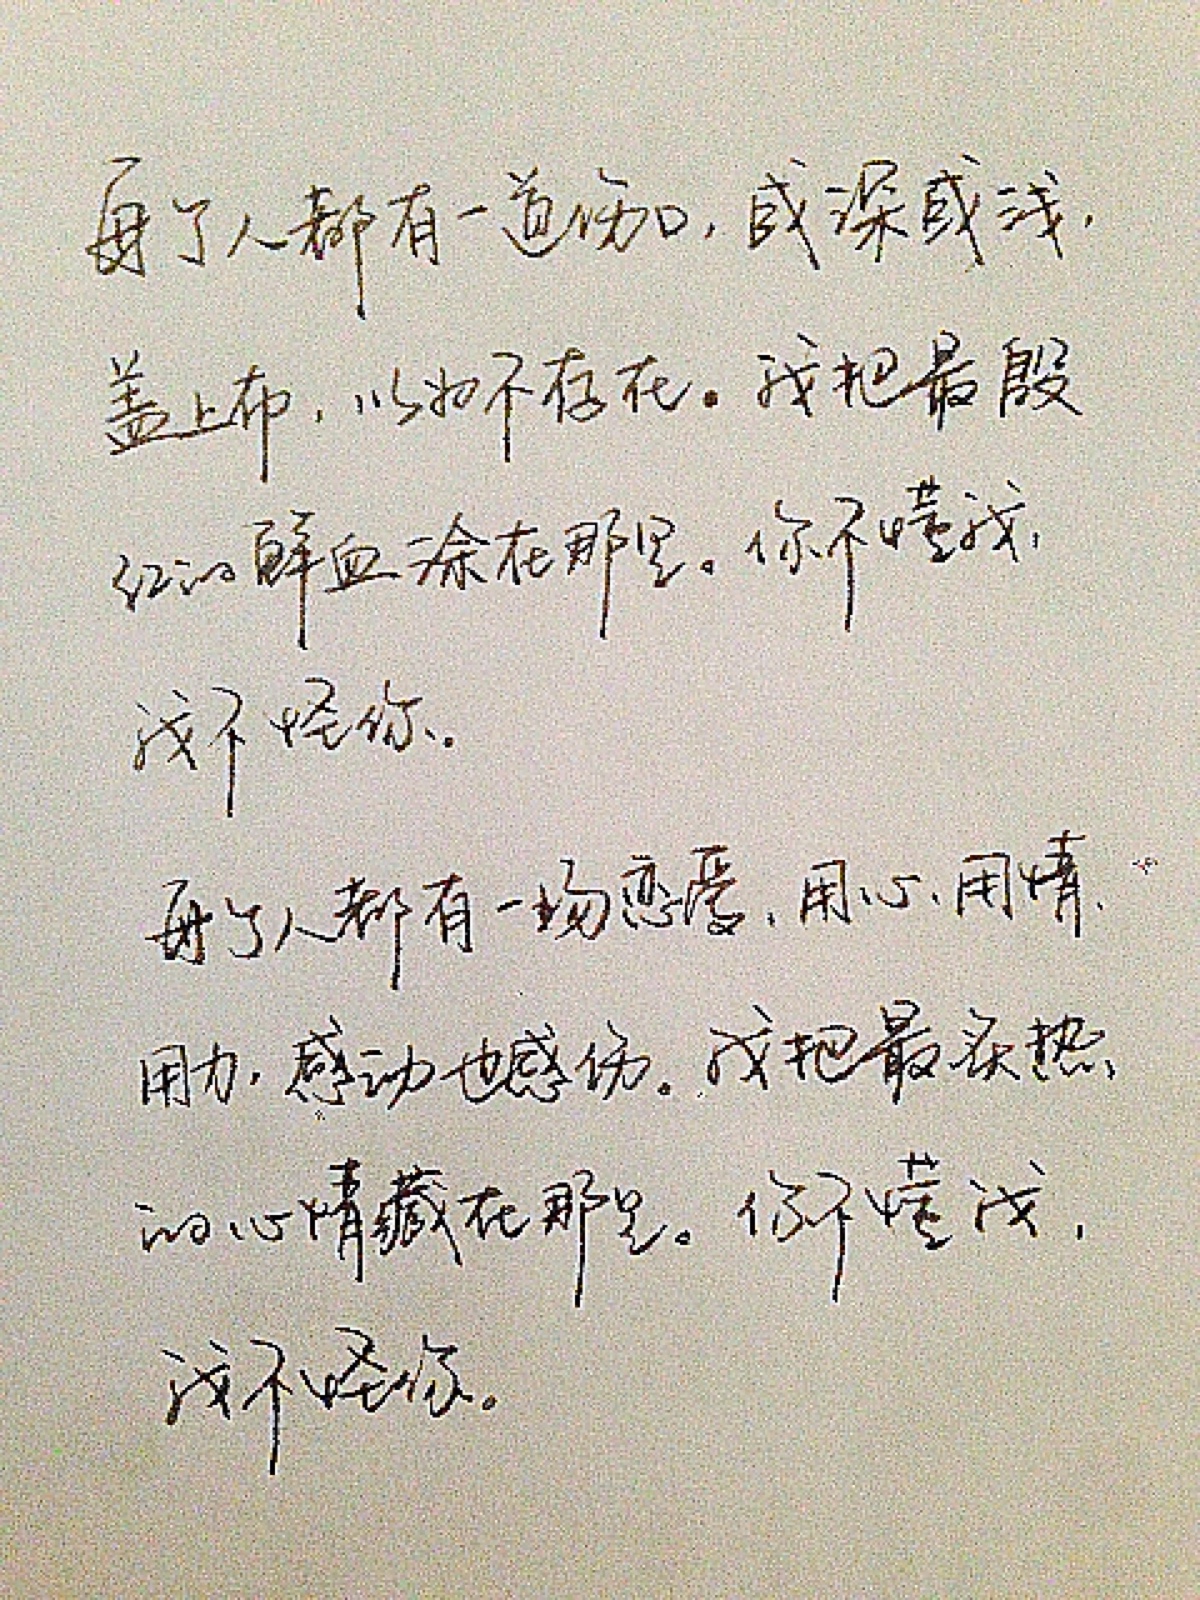 每个人都有一道伤口，或深或浅，
盖上布，以为不存在。我把最殷
红的鲜血涂在那里。你不懂我，
我不怪你。
每个人都有一场恋爱，用心、用情、
用力，感动也感伤。我把最炙热
的心情藏在那里。你不懂我，
我不怪你。